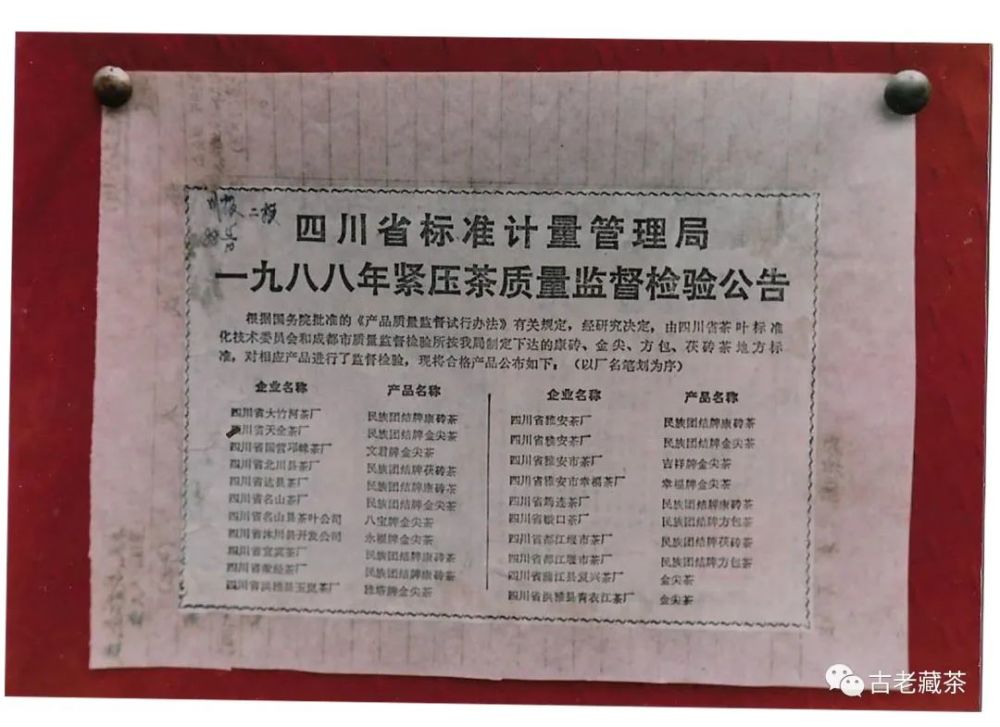 二版
四川省标准计量管理局
一九八八年紧压茶质量监督检验公告
根据国务院批准的《产品质量监督试行办法》有关规定，经研究决定，由四川省茶叶标准
化技术委员会和成都市质量监督检验所按我局制定下达的康砖、金尖、方包、茯砖茶地方标
准，对相应产品进行了监督检验，现将合格产品公布如下：（以厂名笔划为序）
企业名称 产品名称
四川省大竹河茶厂 民族团结牌康砖茶
川省天全茶厂 民族团结牌金尖茶
四川省国营邛崃茶厂 文君牌金尖茶
四川省北川县茶厂 民族团结牌茯砖茶
四川省达县茶厂 民族团结牌康砖茶
四川省名山茶厂 民族团结牌金尖茶
四川省名山县茶叶公司 八宝牌金尖茶
四川省沐川县开发公司 永福牌金尖茶
四川省宜宾茶厂 民族团结牌康砖茶
四川省荥经茶厂 民族团结牌康砖茶
四川省洪雅县玉岚茶厂 雅塔牌金尖茶
企业名称 产品名称
四川省雅安茶厂 民族团结牌康砖茶
四川省雅安茶厂 民族团结牌金尖茶
四川省雅安市茶厂 吉祥牌金尖茶
四川省雅安市幸福茶厂 幸福牌金尖茶
四川省筠连茶厂 民族团结牌康砖茶
四川省 口茶厂 民族团结牌方包茶
四川省都江堰市茶厂 民族团结牌茯砖茶
四川省都江堰市茶厂 民族团结牌方包茶
四川省蒲江县复兴茶厂 金尖茶
四川省洪雅县青衣江茶厂 金尖茶
古老藏茶